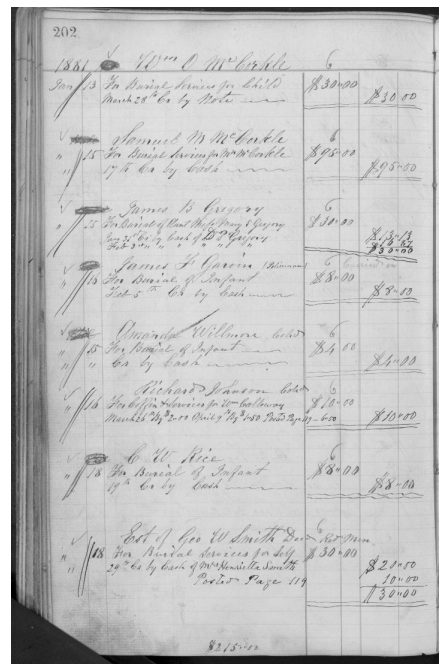 202
1881 Wm O McCorkle 6
Jan 13 For Burial Services for Child $30.00
March 28th Cr by Note $30.00
Samuel M McCorkle 6
" 15 For Burial Services for Mr McCorkle $95.00
" 17th Cr by Cash $95.00
James B Gregory 6
" 15 For Burial of Gregory $30.00
Cr by Cash of Gregory $13.13
Feb $30.00
James F Garvin 6
" 14 For Burial of Infant $8.00
Feb 5th Cr by Cash $8.00
Amanda Willmore Cold 6
" 15 For Burial of Infant $4.00
" " Cr by Cash $4.00
Richard Johnson Cold 6
" 16 For Coffin & Services for Wm Calloway $10.00
March 26th By $2.00 April 9th By $1.50 Posted Page 119 - 6.50 $10.00
C W Rice 6
" 18 For Burial of Infant $8.00
19th Cr by Cash $8.00
Est of Geo W Smith Decd 6
" 18 For Burial Services for Self $30.00
29th Cr by Cash of Mrs Henrietta Smith $20.00
Posted Page 119 10.00
$30.00
$215.00